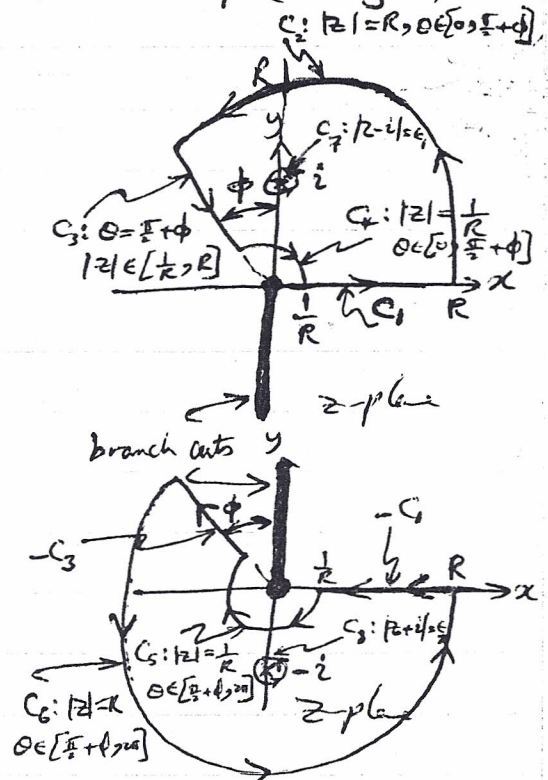 C₂: |z|=R, θ∈[0, π/2+ϕ]
R
y
C₇: |z-i|=ε₁
ϕ
i
C₃: θ=π/2+ϕ
|z|∈[1/R, R]
C₄: |z|=1/R
θ∈[0, π/2+ϕ]
1/R
C₁
R
x
z-plane
branch cuts
y
ϕ
-C₁
-C₃
1/R
R
x
C₅: |z|=1/R
θ∈[π/2+ϕ, 2π]
C₈: |z+i|=ε₂
-i
C₆: |z|=R
θ∈[π/2+ϕ, 2π]
z-plane